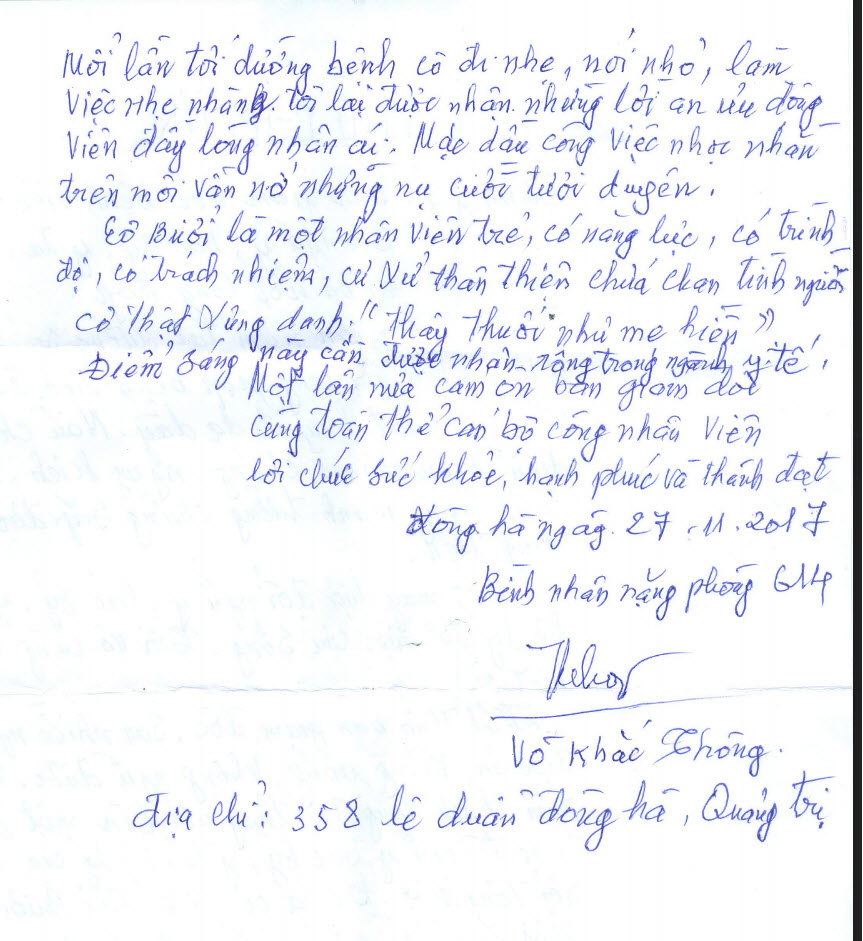 Mỗi lần tới dưỡng bệnh cô đi nhẹ, nói nhỏ, làm
việc nhẹ nhàng. tôi lại được nhận những lời an ủi động
viên đầy lòng nhân ái. Mặc dầu công việc nhọc nhằn
trên môi vẫn nở những nụ cười tươi duyên.
Cô Bưởi là một nhân viên trẻ, có năng lực, có trình
độ, có trách nhiệm, cư xử thân thiện chứa chan tình người
cô thật xứng danh: "thầy thuốc như mẹ hiền"
Điểm sáng này cần được nhân rộng trong ngành y tế.
Một lần nữa cảm ơn ban giám đốc
cùng toàn thể cán bộ công nhân viên
lời chúc sức khỏe, hạnh phúc và thành đạt
đông hà ngày. 27.11.2017
Bệnh nhân nặng phòng
Võ Khắc Thông.
địa chỉ: 358 lê duẩn đông hà, Quảng trị